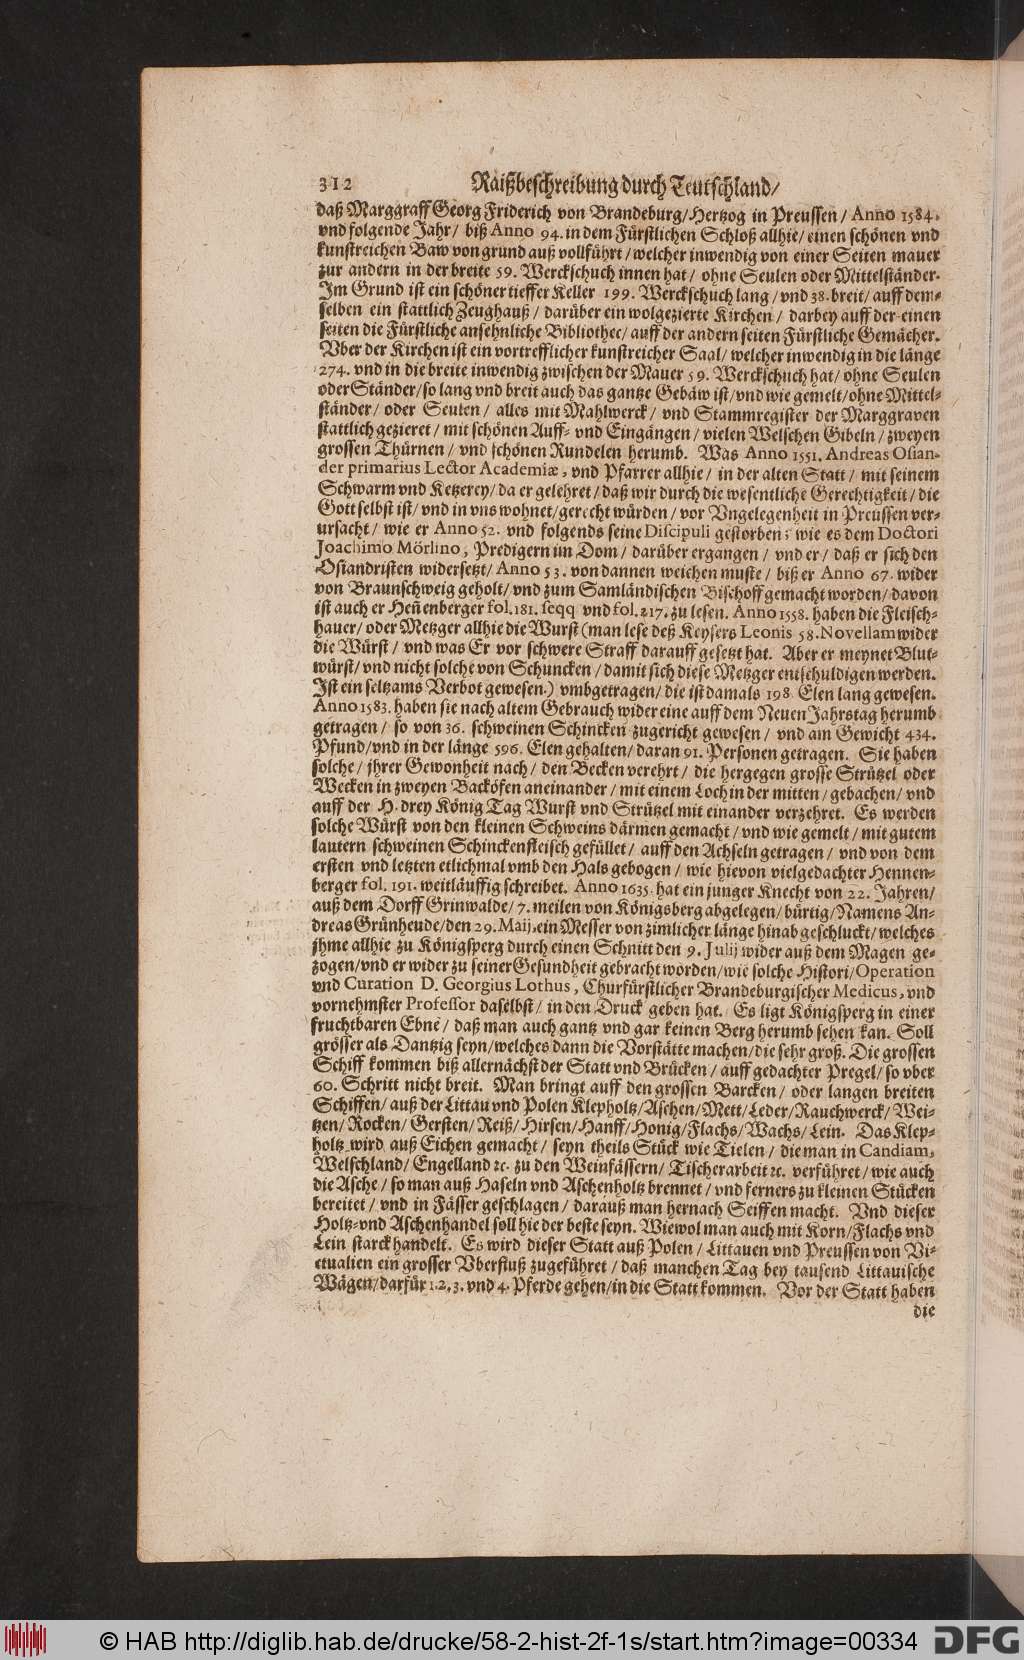 312 Raißbeschreibung durch Teutschland/
daß Marggraff Georg Friderich von Brandeburg/Hertzog in Preussen / Anno 1584.
vnd folgende Jahr/ biß Anno 94. in dem Fürstlichen Schloß allhie/ einen schönen vnd
kunstreichen Baw von grund auß vollführt/welcher inwendig von einer Seiten mauer
zur andern in der breite 59. Werckschuch innen hat / ohne Seulen oder Mittelständer.
Im Grund ist ein schöner tieffer Keller 199. Werckschuch lang / vnd 38. breit/ auff dem-
selben ein stattlich Zeughauß / darüber ein wolgezierte Kirchen / darbey auff der einen
seiten die Fürstliche ansehnliche Bibliothec/ auff der andern seiten Fürstliche Gemächer.
Vber der Kirchen ist ein vortrefflicher kunstreicher Saal/ welcher inwendig in die länge
274. vnd in die breite inwendig zwischen der Mauer 59. Werckschuch hat/ ohne Seulen
oder Ständer/so lang vnd breit auch das gantze Gebäw ist/vnd wie gemelt/ohne Mittel-
ständer/ oder Seulen / alles mit Mahlwerck / vnd Stammregister der Marggraven
stattlich gezieret / mit schönen Auff- vnd Eingängen / vielen Welschen Gibeln / zweyen
grossen Thürnen / vnd schönen Rundelen herumb. Was Anno 1551. Andreas Osian-
der primarius Lector Academiæ, vnd Pfarrer allhie / in der alten Statt / mit seinem
Schwarm vnd Ketzerey/ da er gelehret/ daß wir durch die wesentliche Gerechtigkeit / die
Gott selbst ist/ vnd in vns wohnet/gerecht würden / vor Vngelegenheit in Preussen ver-
ursacht / wie er Anno 52. vnd folgends seine Discipuli gestorben; wie es dem Doctori
Joachimo Mörlino, Predigern im Dom / darüber ergangen / vnd er / daß er sich den
Osiandristen widersetzt/ Anno 53. von dannen weichen muste / biß er Anno 67. wider
von Braunschweig geholt/ vnd zum Samländischen Bischoff gemacht worden/ davon
ist auch er Heñenberger fol. 181. seqq vnd fol. 217. zu lesen. Anno 1558. haben die Fleisch-
hauer/ oder Metzger allhie die Wurst (man lese deß Keysers Leonis 58. Novellam wider
die Würst / vnd was Er vor schwere Straff darauff gesetzt hat. Aber er meynet Blut-
würst/ vnd nicht solche von Schuncken / damit sich diese Metzger entschuldigen werden.
Ist ein seltzams Verbot gewesen.) vmbgetragen/ die ist damals 198. Elen lang gewesen.
Anno 1583. haben sie nach altem Gebrauch wider eine auff dem Neuen Jahrstag herumb
getragen / so von 36. schweinen Schincken zugericht gewesen / vnd am Gewicht 434.
Pfund/vnd in der länge 596. Elen gehalten/ daran 91. Personen getragen. Sie haben
solche / jhrer Gewonheit nach / den Becken verehrt / die hergegen grosse Strützel oder
Wecken in zweyen Backöfen aneinander / mit einem Loch in der mitten / gebachen/ vnd
auff der H. drey König Tag Wurst vnd Strützel mit einander verzehret. Es werden
solche Würst von den kleinen Schweins därmen gemacht / vnd wie gemelt / mit gutem
lautern schweinen Schinckenfleisch gefüllet / auff den Achseln getragen / vnd von dem
ersten vnd letzten etlichmal vmb den Hals gebogen / wie hievon vielgedachter Hennen-
berger fol. 191. weitläuffig schreibet. Anno 1635. hat ein junger Knecht von 22. Jahren/
auß dem Dorff Grinwalde/ 7. meilen von Königsberg abgelegen/ bürtig/Namens An-
dreas Grünheude/den 29. Maij, ein Messer von zimlicher länge hinab geschluckt/ welches
jhme allhie zu Königsperg durch einen Schnitt den 9. Julij wider auß dem Magen ge-
zogen/vnd er wider zu seiner Gesundheit gebracht worden/wie solche Histori/Operation
vnd Curation D. Georgius Lothus, Churfürstlicher Brandeburgischer Medicus, vnd
vornehmster Professor daselbst/ in den Druck geben hat. Es ligt Königsperg in einer
fruchtbaren Ebne/ daß man auch gantz vnd gar keinen Berg herumb sehen kan. Soll
grösser als Dantzig seyn/welches dann die Vorstätte machen/die sehr groß. Die grossen
Schiff kommen biß allernächst der Statt vnd Brücken / auff gedachter Pregel/ so vber
60. Schritt nicht breit. Man bringt auff den grossen Barcken / oder langen breiten
Schiffen/ auß der Littau vnd Polen Klepholtz/Aschen/Mett/Leder/Rauchwerck/ Wei-
tzen/ Rocken/ Gersten/ Reiß/ Hirsen/Hanff/Honig/Flachs/Wachs/ Lein. Das Klep-
holtz wird auß Eichen gemacht / seyn theils Stück wie Tielen / die man in Candiam,
Welschland/ Engelland ꝛc. zu den Weinfässern/ Tischerarbeit ꝛc. verführet / wie auch
die Asche / so man auß Haseln vnd Aschenholtz brennet / vnd ferners zu kleinen Stücken
bereitet / vnd in Fässer geschlagen / darauß man hernach Seiffen macht. Vnd dieser
Holtz- vnd Aschenhandel soll hie der beste seyn. Wiewol man auch mit Korn/Flachs vnd
Lein starck handelt. Es wird dieser Statt auß Polen / Littauen vnd Preussen von Vi-
ctualien ein grosser Vberfluß zugeführet / daß manchen Tag bey tausend Littauische
Wägen/darfür 1. 2. 3. vnd 4. Pferde gehen/in die Statt kommen. Vor der Statt haben
die
© HAB http://diglib.hab.de/drucke/58-2-hist-2f-1s/start.htm?image=00334 DFG